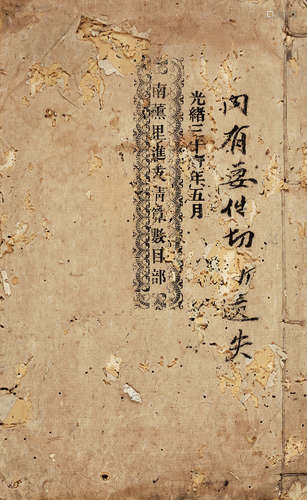 內有要件切勿遺失
光緒三十年五月
南薰里進支清算數目部